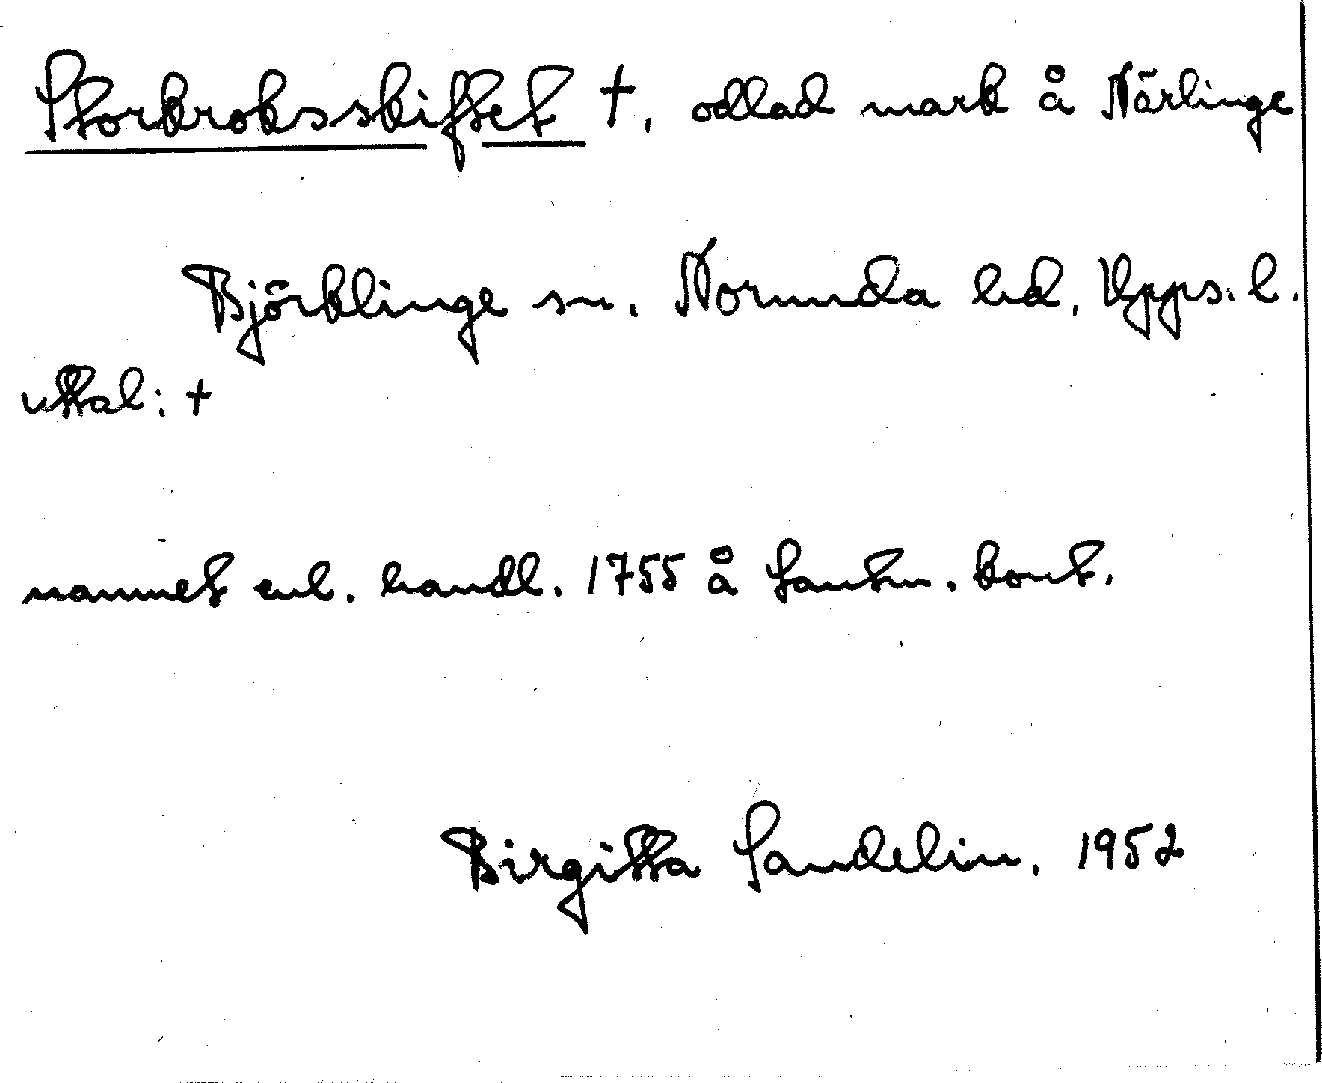 Storkroksskiftet †, odlad mark å Närlinge
Björklinge sn. Norunda hd, Upps. l.
uttal: †
namnet enl. handl. 1755 å Lantm. kont.
Birgitta Sandelin. 1952